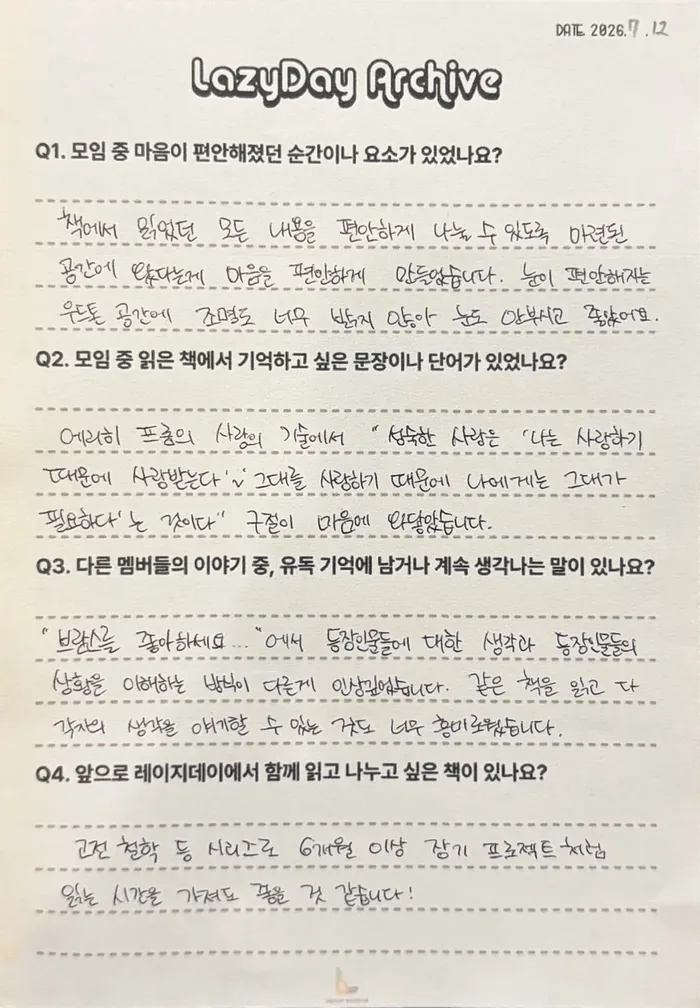 DATE 2026.7.12
LazyDay Archive
Q1. 모임 중 마음이 편안해졌던 순간이나 요소가 있었나요?
책에서 읽었던 모든 내용을 편안하게 나눌 수 있도록 마련된
공간에 왔다는게 마음을 편안하게 만들었습니다. 눈이 편안해지는
우드톤 공간에 조명도 너무 밝지 않아 눈도 안부시고 좋았어요.
Q2. 모임 중 읽은 책에서 기억하고 싶은 문장이나 단어가 있었나요?
에리히 프롬의 사랑의 기술에서 "성숙한 사랑은 '나는 사랑하기
때문에 사랑받는다'~' 그대를 사랑하기 때문에 나에게는 그대가
필요하다'는 것이다" 구절이 마음에 와닿았습니다.
Q3. 다른 멤버들의 이야기 중, 유독 기억에 남거나 계속 생각나는 말이 있나요?
"브람스를 좋아하세요..."에서 등장인물들에 대한 생각과 등장인물들의
상황을 이해하는 방식이 다른게 인상깊었습니다. 같은 책을 읽고 다
각자의 생각을 얘기할 수 있는 것도 너무 흥미로웠습니다.
Q4. 앞으로 레이지데이에서 함께 읽고 나누고 싶은 책이 있나요?
고전 철학 등 시리즈로 6개월 이상 장기 프로젝트처럼
읽는 시간을 가져도 좋을 것 같습니다!